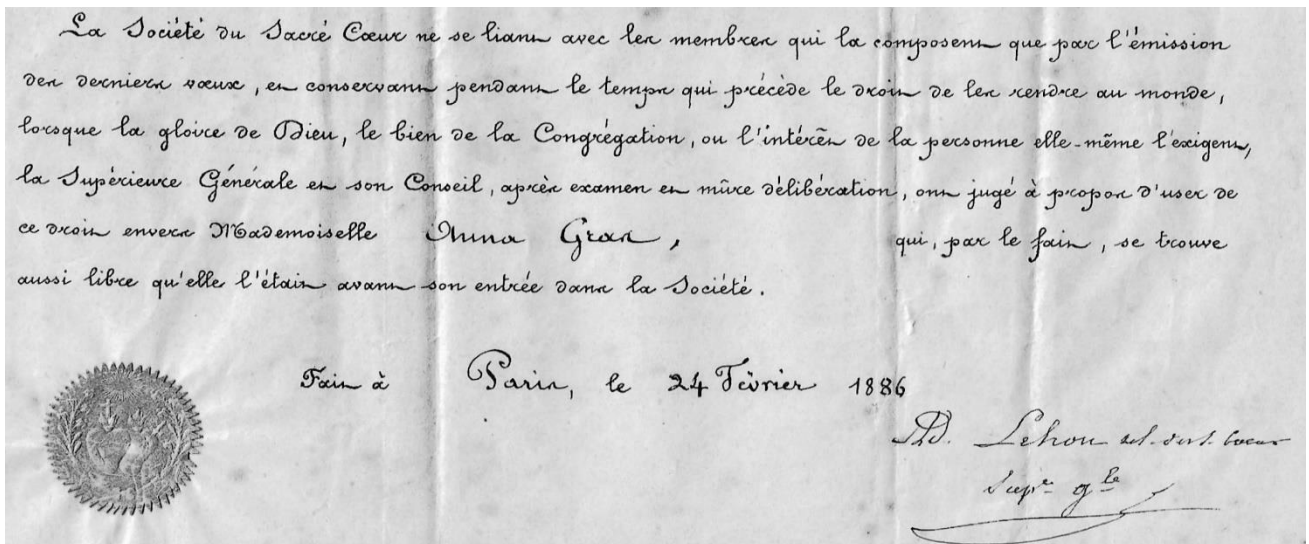 La Société du Sacré Cœur ne se liant avec les membres qui la composent que par l'émission
des derniers vœux, et conservant pendant le temps qui précède le droit de les rendre au monde,
lorsque la gloire de Dieu, le bien de la Congrégation, ou l'intérêt de la personne elle-même l'exigent,
la Supérieure Générale et son Conseil, après examen et mûre délibération, ont jugé à propos d'user de
ce droit envers Mademoiselle Anna Gras, qui, par le fait, se trouve
aussi libre qu'elle l'était avant son entrée dans la Société.
Fait à Paris, le 24 Février 1886
Ad. Lehon
Supre gle